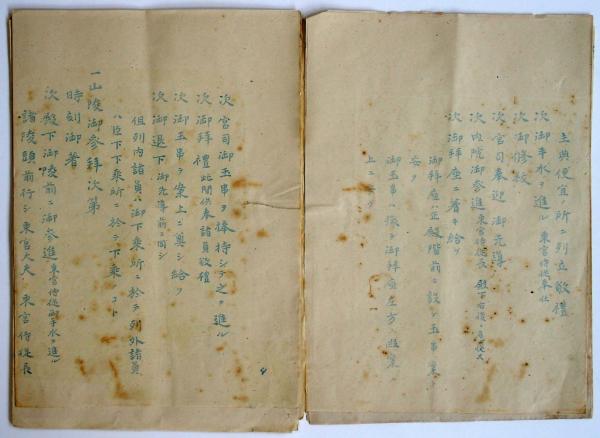 主典便宜ノ所ニ列立敬禮
次御手水ヲ進ル 東宮侍従奉仕
次御修祓
次宮司奉迎御先導
次内院御参進 東宮侍従長 殿下右後
次御拝座ニ着キ給フ
御拝座ハ正殿階前ニ設ク玉串案ハ
御玉串ハ御拝座左方
次宮司御玉串ヲ捧持シテ之ヲ進ル
次御拝禮 此間供奉諸員敬禮
次御玉串ヲ案上ニ奠シ給フ
次御退下 御先導前ニ同シ
但列内諸員ハ御下乗所ニ於テ列外諸員
ハ臣下下乗所ニ於テ下乗ノコト
一山陵御参拝次第
時刻御着
次殿下御陵前ニ御参進 東宮侍従御手水ヲ進ル
諸陵頭前行シ東宮大夫 東宮侍従長
4